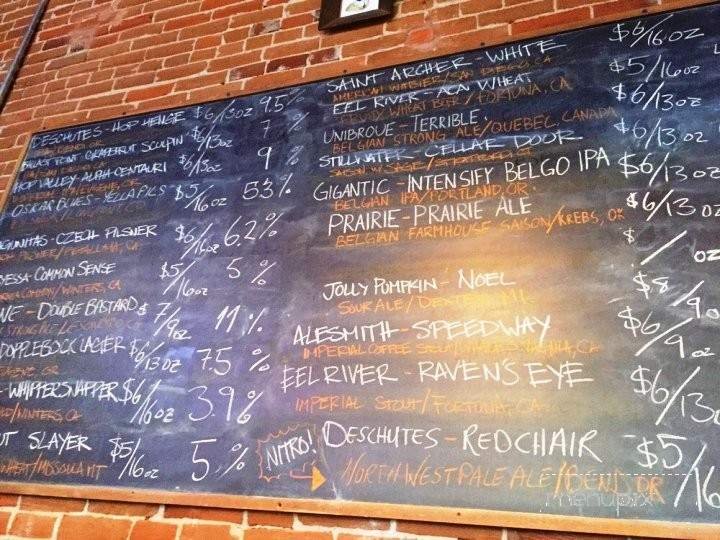 DESCHUTES - HOP HENGE $6/13oz 9.5%
GRAPEFRUIT SCULPIN $6/13oz 7%
HOP VALLEY - ALPHA CENTAURI $6/13oz 9%
OSKAR BLUES - YELLA PILS $5/16oz 5.3%
LAGUNITAS - CZECH PILSNER $6/16oz 6.2%
COMMON SENSE $5/16oz 5%
WINTERS, CA
- DOUBLE BASTARD $7/9oz 11%
DOPPLEBOCK LAGER $6/13oz 7.5%
- WHIPPERSNAPPER $6/16oz 3.9%
WINTERS, CA
SLAYER $5/16oz 5%
WHEAT/MISSOULA MT
SAINT ARCHER - WHITE $6/16oz
AMERICAN WITBIER/SAN DIEGO, CA
EEL RIVER - ACAI WHEAT $5/16oz
WHEAT BEER/FORTUNA, CA
UNIBROUE - TERRIBLE $6/13oz
BELGIAN STRONG ALE/QUEBEC, CANADA
STILLWATER - CELLAR DOOR $6/13oz
SAISON W/ SAGE/
GIGANTIC - INTENSIFY BELGO IPA $6/13oz
BELGIAN IPA/PORTLAND, OR.
PRAIRIE - PRAIRIE ALE $6/13oz
BELGIAN FARMHOUSE SAISON/KREBS, OK
$ / oz
JOLLY PUMPKIN - NOEL $8/9o
SOUR ALE/DEXTER, MI
ALESMITH - SPEEDWAY $6/9oz
IMPERIAL COFFEE
EEL RIVER - RAVEN'S EYE $6/13
IMPERIAL STOUT/FORTUNA, CA
NITRO! DESCHUTES - REDCHAIR $5/16
NORTHWEST PALE ALE/BEND, OR
menupix